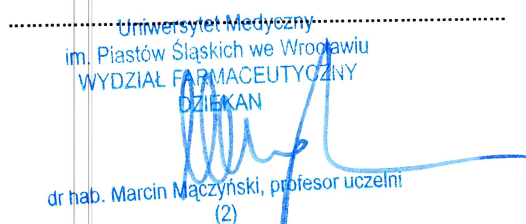 Uniwersytet Medyczny
im. Piastów Śląskich we Wrocławiu
WYDZIAŁ FARMACEUTYCZNY
DZIEKAN
dr hab. Marcin Mączyński, profesor uczelni
(2)